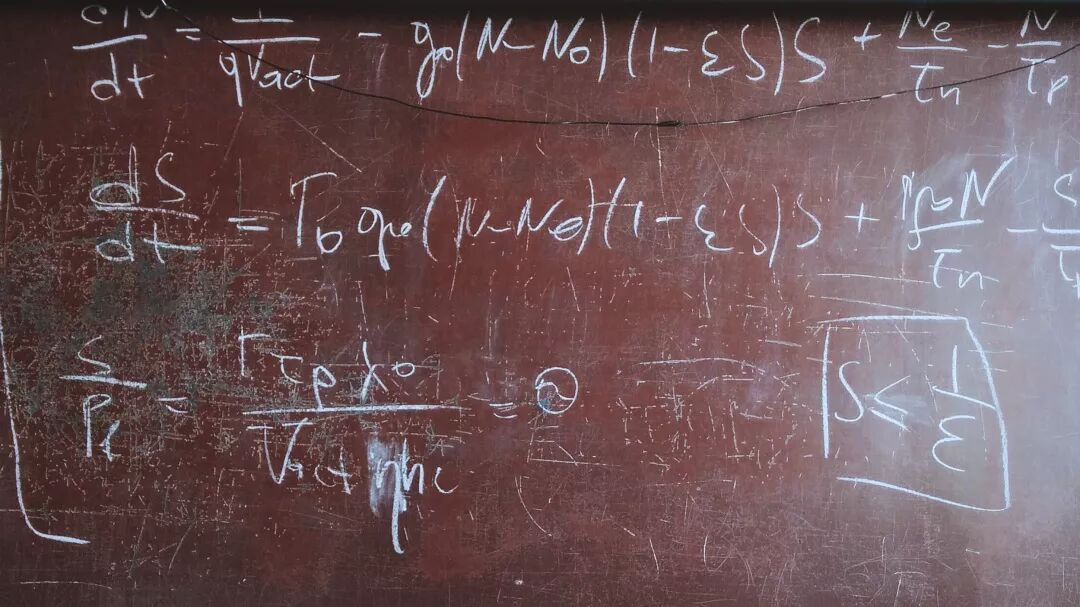 dN/dt = I/qVact - g₀(N-N₀)(1-εS)S + Ne/τn - N/τp
dS/dt = Γ₀ g₀(N-N₀)(1-εS)S + N/τn - S/τ
S/Pf = Γτpλ₀/Vact ηhc =
S ≤ 1/ε